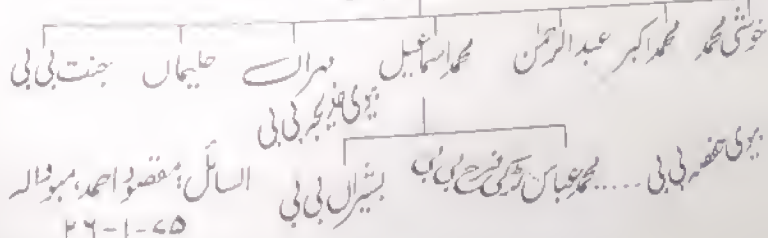 خوشی محمد محمد اکبر عبد الرحمٰن محمد اسماعیل مہراں حلیماں جنت بی بی
بیوی خدیجہ بی بی
بیوی حفصہ بی بی ..... محمد عباس لڑکی فرح بی بی بشیراں بی بی السائل: مقصود احمد،
۲۶-۱-۷۵